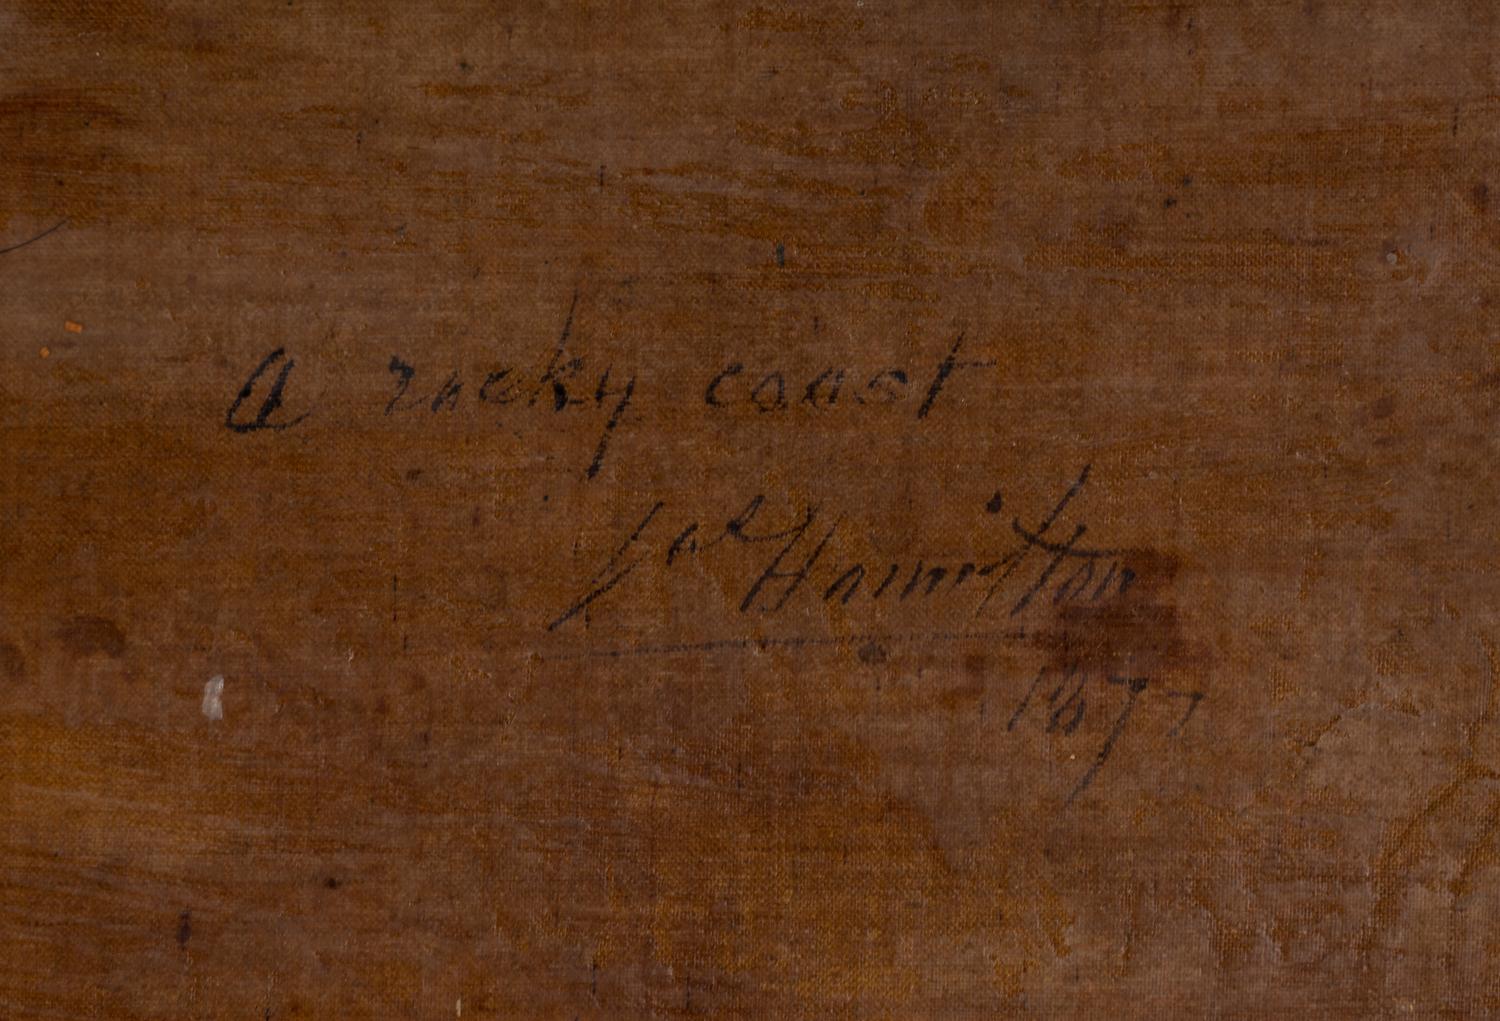 a rocky coast
Jas Hamilton
1877